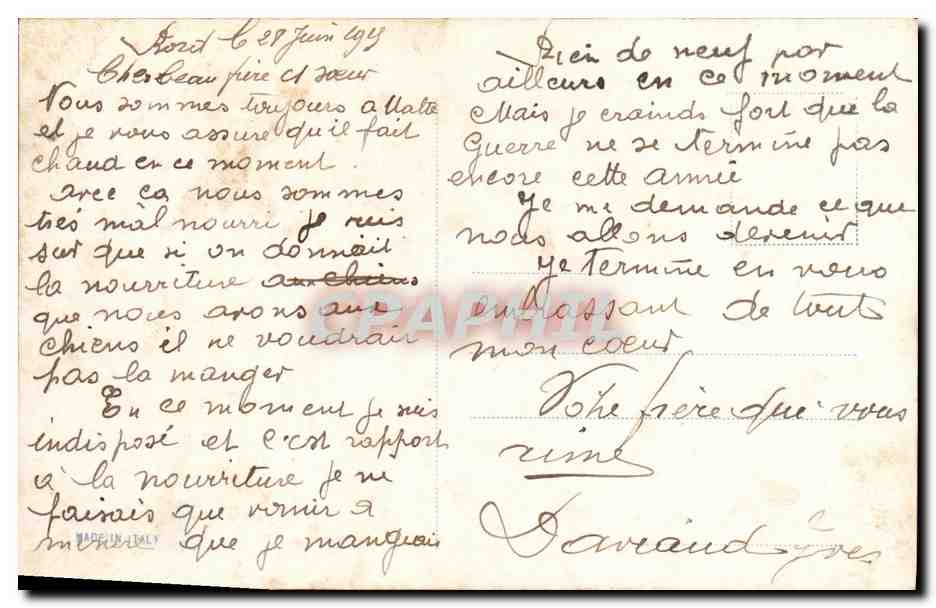 Bord le 28 Juin 1915
Cher beau frère et sœur
Nous sommes toujours a Malte
et je vous assure qu'il fait
chaud en ce moment.
avec ca nous sommes
tres mal nourri je suis
sur que si on donnait
la nourriture aux chiens
que nous avons aux
chiens il ne voudrait
pas la manger
En ce moment je suis
indisposé et c'est rapport
à la nourriture je ne
faisais que vomir a
mesure que je mangeais
MADE IN ITALY
Rien de neuf par
ailleurs en ce moment
Mais je crainds fort que la
Guerre ne se termine pas
encore cette année
Je me demande ce que
nous allons devenir
Je termine en vous
embrassant de tout
mon coeur
Votre frère qui vous
aime
Yves
CPAPHIL